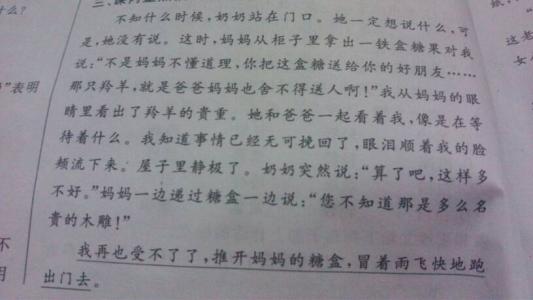 什么?
三、课内
不知什么时候，奶奶站在门口。她一定想说什么，可
是，她没有说。这时，妈妈从柜子里拿出一铁盒糖果对我
说：“不是妈妈不懂道理，你把这盒糖送给你的好朋友……
那只羚羊，就是爸爸妈妈也舍不得送人啊！”我从妈妈的眼
睛里看出了羚羊的贵重。她和爸爸一起看着我，像是在等
待着什么。我知道事情已经无可挽回了，眼泪顺着我的脸
颊流下来。屋子里静极了。奶奶突然说：“算了吧，这样多
不好。”妈妈一边递过糖盒一边说：“您不知道那是多么名
贵的木雕！”
我再也受不了了，推开妈妈的糖盒，冒着雨飞快地跑
出门去。
”表明
不
明
这老
女